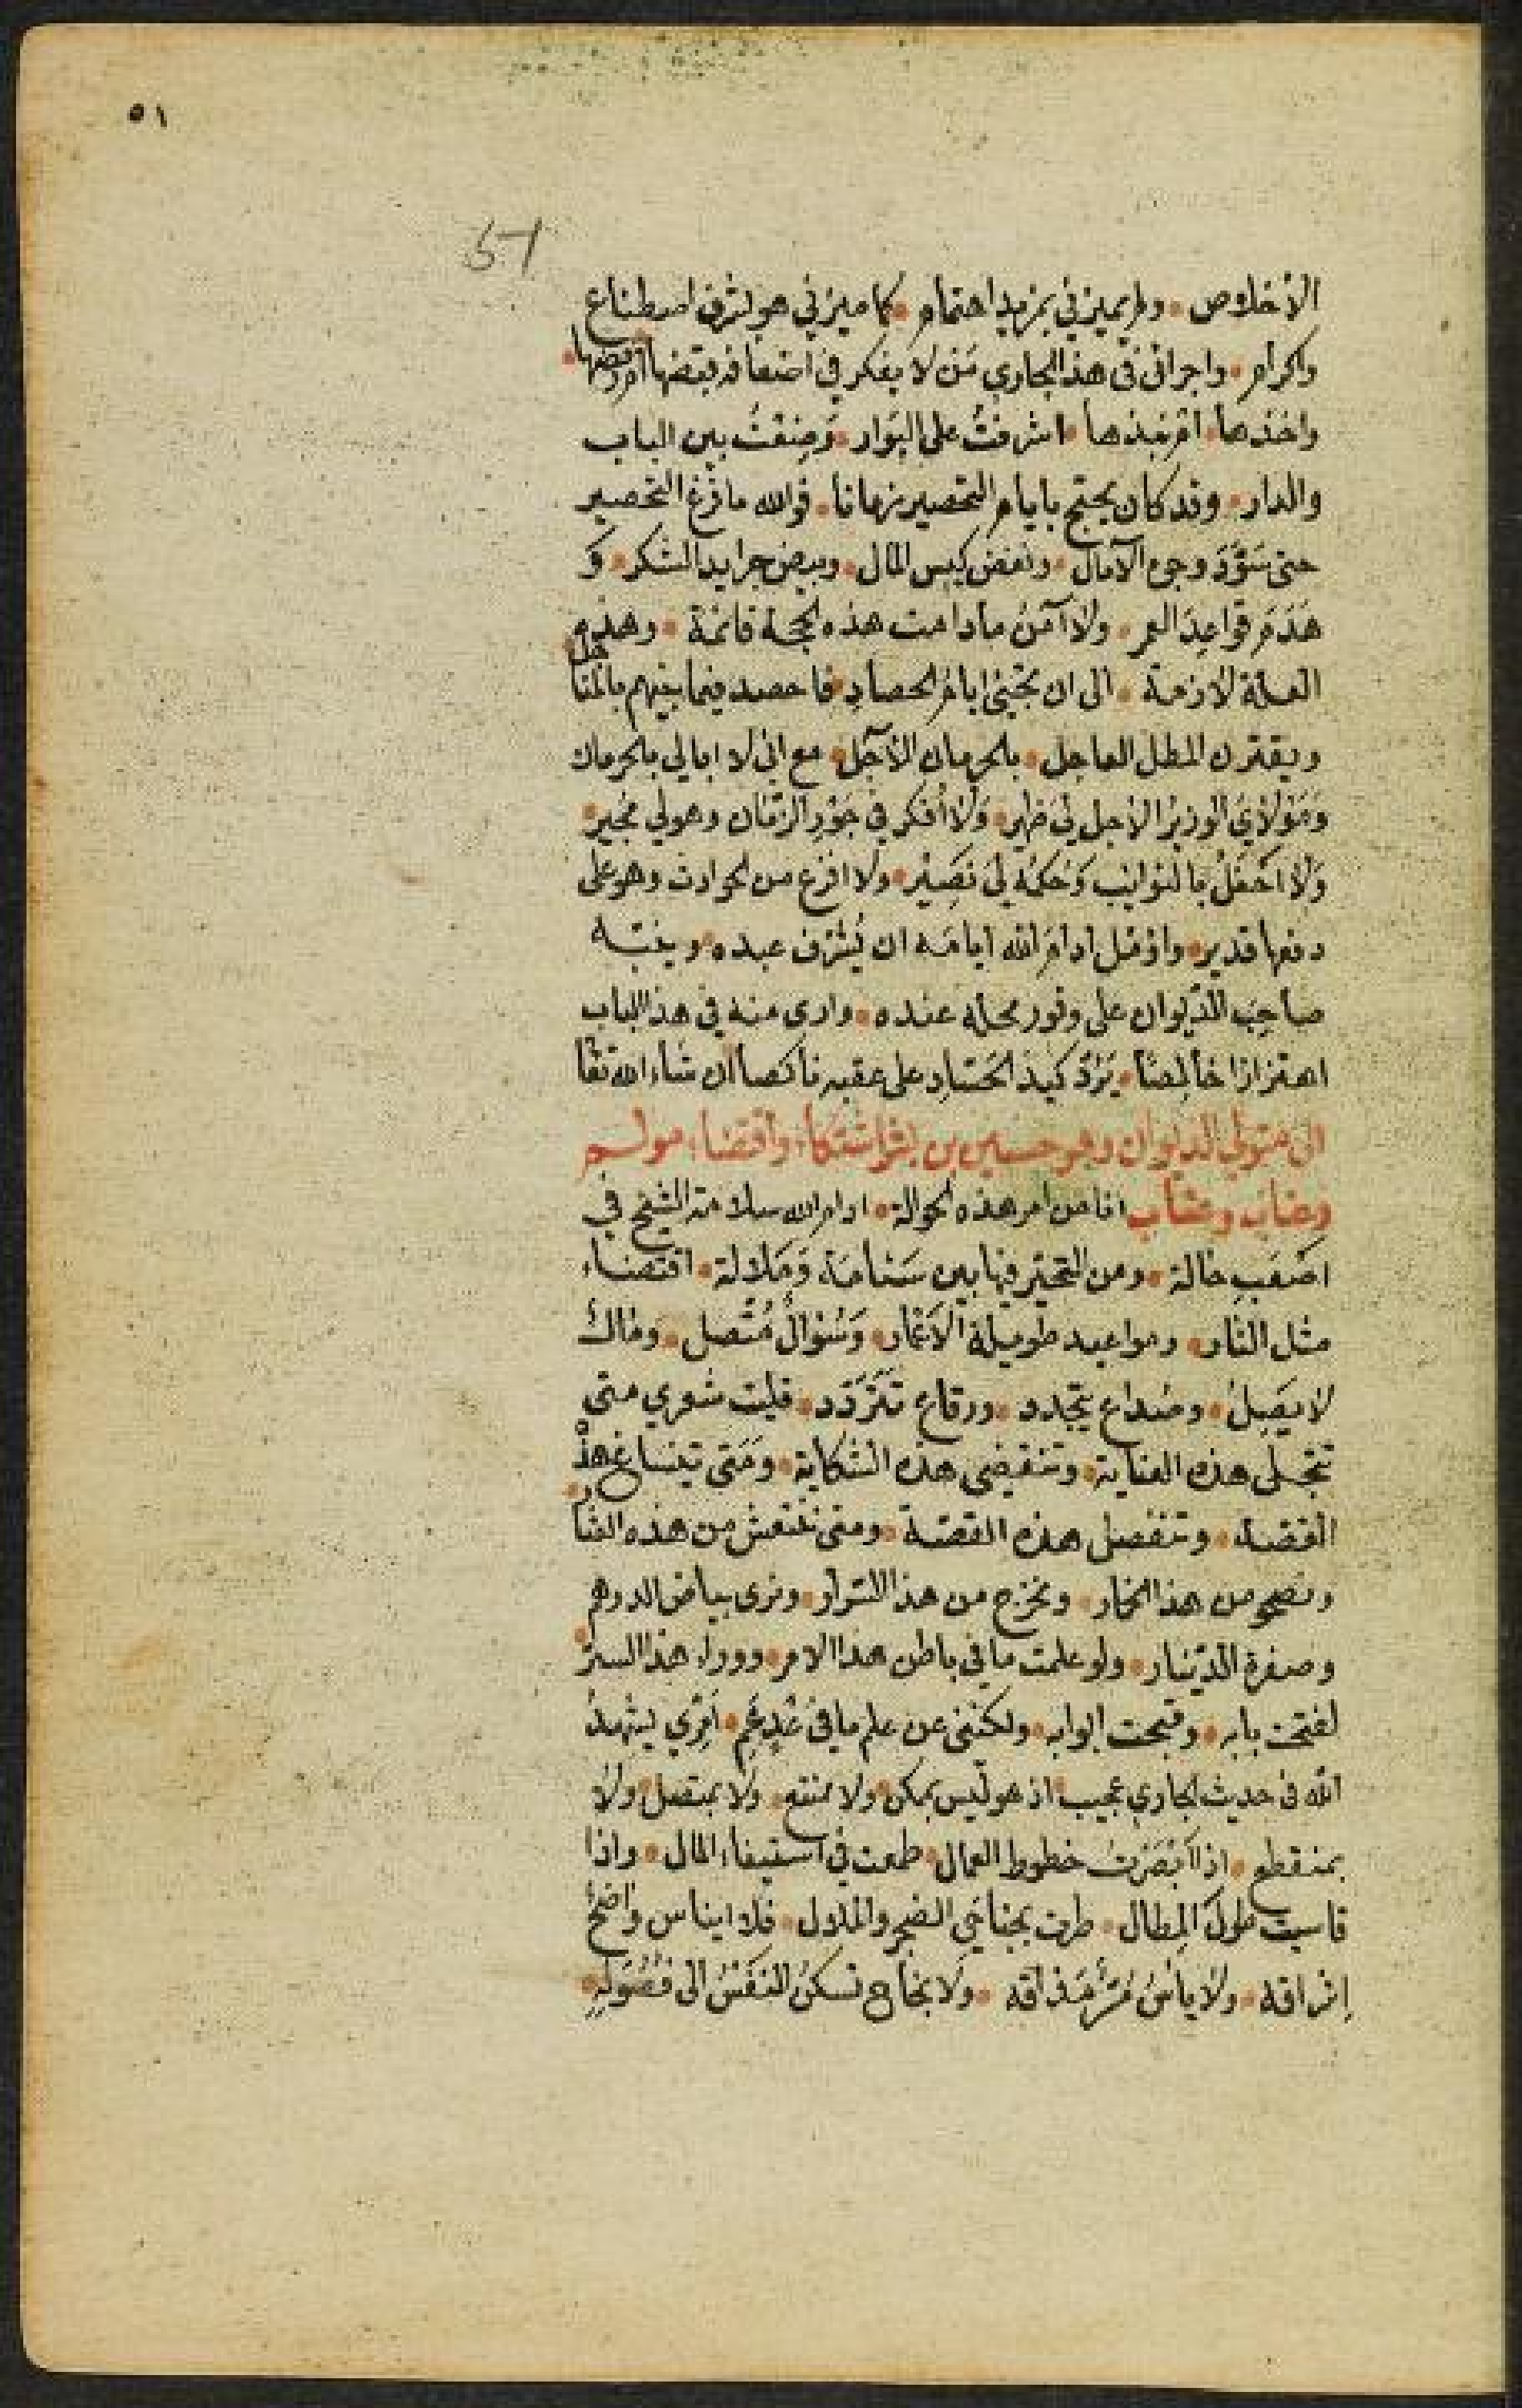 ٥١
51
الاخلاص • ولم يميزني بمزيد اهتمام • كما ميزني هو بشرف اصطناع
واكرام • واجراني في هذا الجاري من لا يفكر في اضعافه قبضها ام رفضها •
واخذها • ام نبذها • اشرفتُ على البَوار • وَضِقتُ بين الباب
والدار • وقد كان يحتج بايام التحصير زمانا • فوالله ما فرغ التحصير
حتى سَوَّدَ وجوه الآمال • ونفض كيس المال • وبيض جرايد الشكر • وَ
هَدَمَ قواعِدَ العمر • ولا آمَنُ ما دامت هذه الحجة قائمة • وهذه
العلة لازمة • الى ان تجيئ ايام الحصاد فاحصد فيما بينهم بالمناجل
ويقترن المطل العاجل • بالحرمان الآجل • مع اني لا ابالي بالحرمان
وَمَوْلايَ الوزيرُ الاجل لي ظهير • وَلا أفكر في جَوْرِ الزمَان وهو لي مجير •
وَلا احَفَلُ بالنوايب وَحُكمُه لي نَصِيْر • ولا افزع من الحوادث وهو على
دفعها قدير • واؤمل ادامَ الله ايامَه ان يُشرّف عبده • وينبّه
صاحِبَ الدّيوان على وفور محله عنده • وارى منه في هذا الباب
اهتزازا خالصًا • يَرُدّ كيدَ الحسّادِ على عقبه ناكصا ان شاء الله تعا
الى متولي الديوان وهو حسين بن بشر اشتكاء واقتضاء مولــم
وعتاب انا من امر هذه الحوالة • ادام الله سلامة الشيخ في
اصْعَبِ حالة • ومن التحير فيها بين سَئامَة وَمَلالة • اقتضاء
مثل النار • ومواعيد طويلة الاَعْمار • وَسُؤالٌ مُتّصل • ومالٌ
لا يَصِلُ • وصُداع يتجدد • ورقاع تَتَردّد • فليت شعري متى
تتجلى هذه الغياية • وتنقضي هذه الشكاية • وَمَتى تنساغ هذه
الغصة • وتنفصل هذه القصّة • ومتى ننتعش من هذه العثار
ونصحو من هذا الخمار • ونخرج من هذا السّرار • ونرى بياض الدرهم
وصفرة الدّينار • ولو علمت ما في باطن هذا الامر • ووراء هذا الستر
لفتحت بابه • وقبحت ابوابه • ولكنني عن علم ما في غدٍ عَمِ • امري يشهدُ
الله في حديث الجاري عجيب اذ هو ليس بممكن ولا ممتنع • ولا بمتصل ولا
بمنقطع • اذا اَبْصَرْتُ خطوط العمال • طمعت في استيفاء المال • واذا
قاسيت طولَ المِطال • طرت بجناحَي الضجر والملال • فلا ايناس واضحٌ
اِشراقه • ولا يأسٌ مُرٌّ مَذاقه • ولا نجاح تسكنُ النفسُ الى فُصُوله •